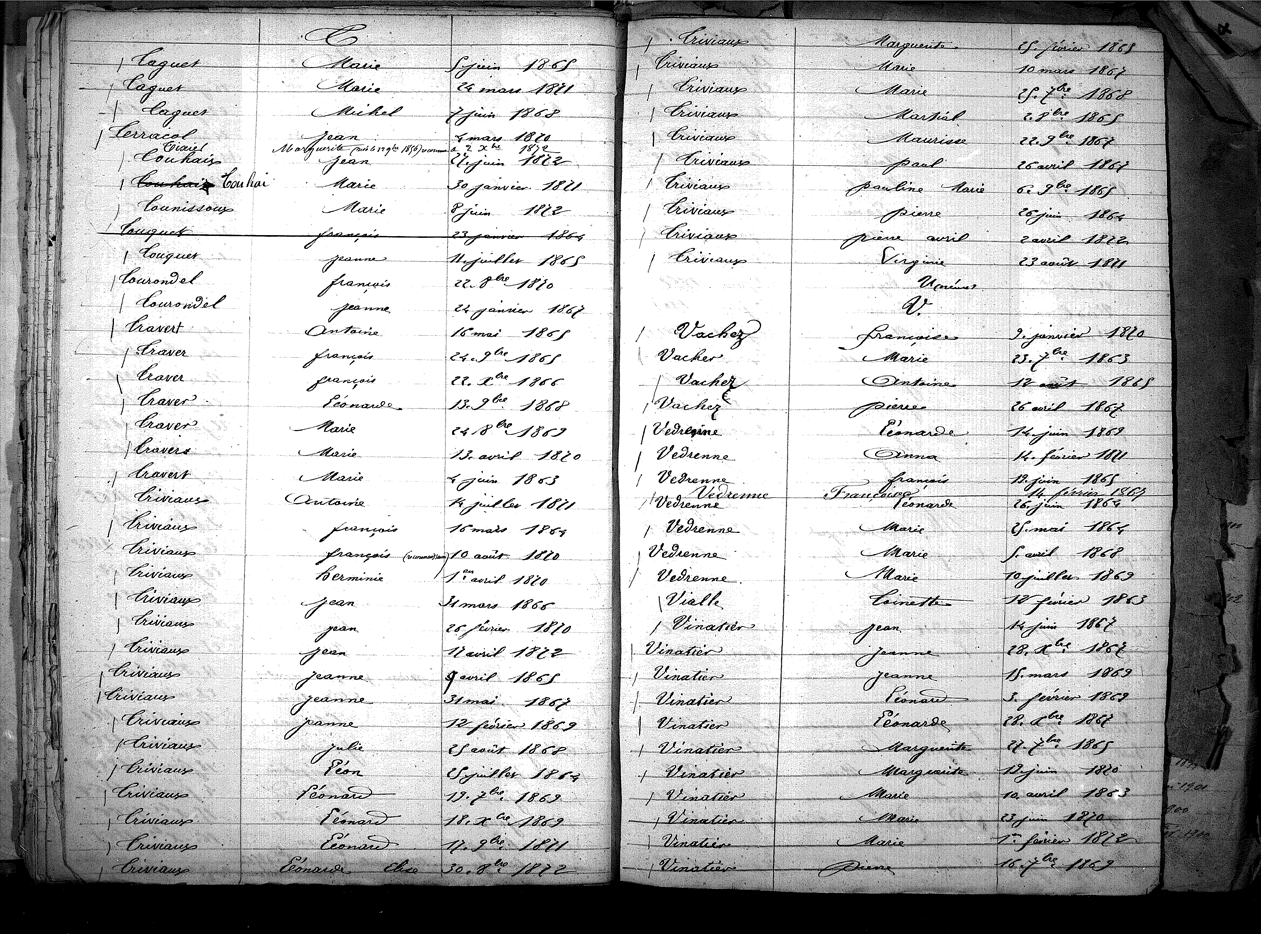 T
Taguet Marie 5 juin 1865
Taguet Marie 24 mars 1871
Taguet Michel 7 juin 1868
Terracol Jean 4 mars 1870
Marguerite 2 Xbre 1872
Touhais Jean 27 juin 1872
Touhais Touhai Marie 30 janvier 1871
Tounissoux Marie 8 juin 1872
Touquet françois 23 janvier 1864
Touquet jeanne 11 juillet 1865
Tourondel françois 22. 8bre 1870
Tourondel jeanne 24 janvier 1867
Travert Antoine 16 mai 1865
Traver françois 24. 9bre 1865
Traver françois 22. Xbre 1866
Traver Léonarde 13. 9bre 1868
Traver Marie 24 8bre 1869
Travers Marie 13. avril 1870
Travert Marie 4 juin 1863
Triviaux Antoine 14 juillet 1871
Triviaux françois 16 mars 1864
Triviaux françois 10 août 1870
Triviaux herminie 1er avril 1870
Triviaux jean 31 mars 1866
Triviaux jean 26 février 1870
Triviaux jean 17 avril 1872
Triviaux jeanne 9 avril 1865
Triviaux jeanne 31 mai 1867
Triviaux jeanne 12 février 1869
Triviaux julie 25 août 1868
Triviaux Léon 25 juillet 1864
Triviaux Léonard 19. 7bre 1869
Triviaux Léonard 18. Xbre 1869
Triviaux Léonard 17. 9bre 1871
Triviaux Léonarde Elise 30. 8bre 1872
Triviaux Marguerite 25. février 1865
Triviaux Marie 10 mars 1867
Triviaux Marie 25. 7bre 1868
Triviaux Martial 2. 8bre 1865
Triviaux Maurisse 22. 9bre 1867
Triviaux paul 26 avril 1867
Triviaux pauline Marie 6. 9bre 1865
Triviaux pierre 26 juin 1864
Triviaux pierre avril 2 avril 1872
Triviaux Virginie 23 août 1871
V.
Vachez françoise 9. janvier 1870
Vacher Marie 23. 7bre 1863
Vachez Antoine 12 août 1865
Vachez pierre 26 avril 1867
Vedrenne Léonarde 14. juin 1869
Vedrenne Anna 14. février 1871
Vedrenne françois 13 juin 1865
Vedrenne Françoise 14 février 1867
Vedrenne Léonarde 26. juin 1864
Vedrenne Marie 25. mai 1864
Vedrenne Marie 5. avril 1868
Vedrenne Marie 10 juillet 1869
Vialle Toinette 12 février 1863
Vinatier jean 14 juin 1867
Vinatier jeanne 28. Xbre 1867
Vinatier jeanne 15. mars 1869
Vinatier Léonard 3. février 1869
Vinatier Léonarde 28. Xbre 1867
Vinatier Marguerite 27. 7bre 1865
Vinatier Marguerite 12 juin 1870
Vinatier Marie 10. avril 1863
Vinatier Marie 23 juin 1870
Vinatier Marie 1er février 1872
Vinatier pierre 16. 7bre 1869